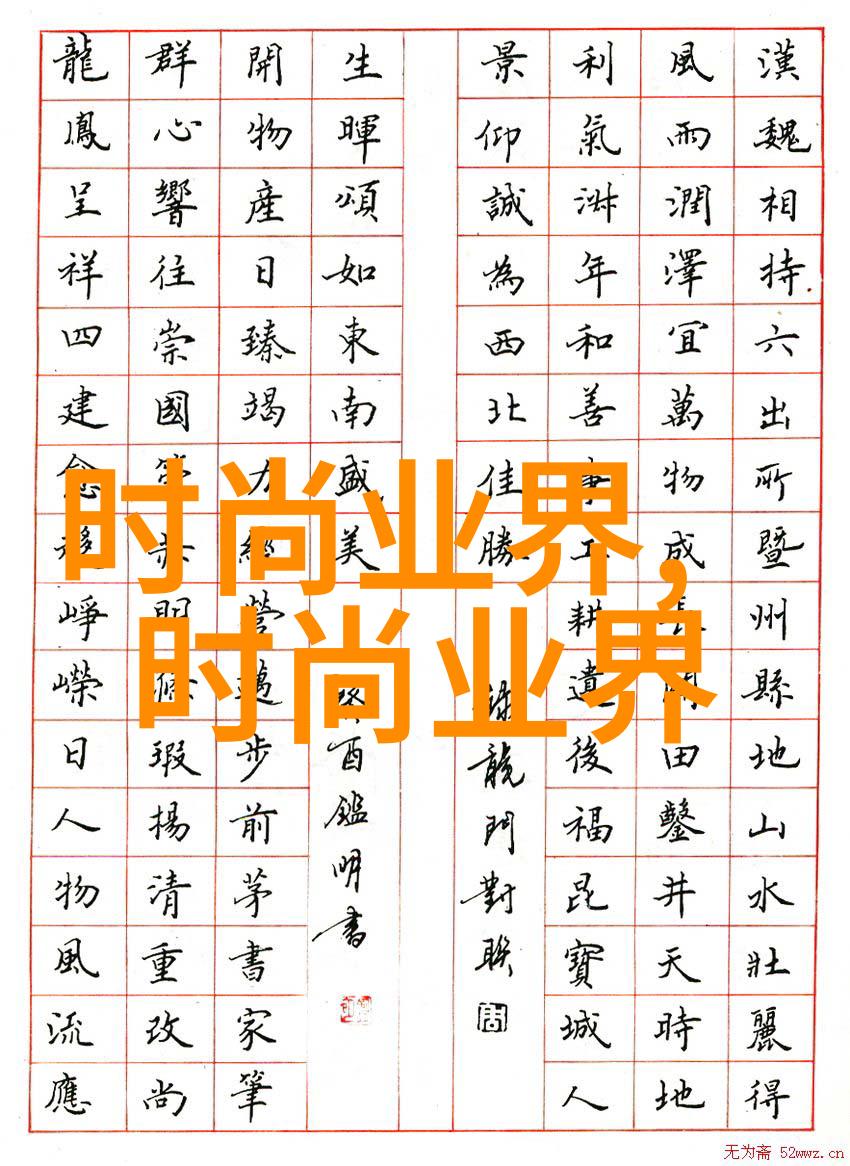 漢魏相持六出所暨州縣地山水壯麗得
風雨潤澤宜萬物成長開田鑿井天時地
利氣淑年和善事工耕遺後福昆寶城人
景仰誠為西北佳勝
龍門對聯
生暉頌如東南盛美
癸酉鑑明書
開物產日臻竭力經營邁步前茅書家筆
群心響往崇國瑕揚清重改尚
龍鳳呈祥四建愈崢嶸日人物風流應
时尚业界,
时尚业界
无为斋 52wwz.cn